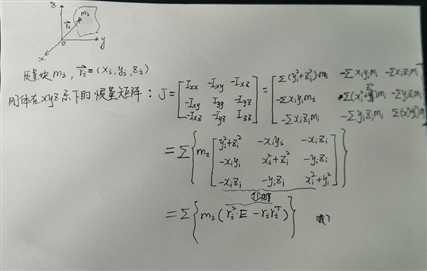 z
m_i
r⃗_i
x
o
y
质量块 m_i, r⃗_i = (x_i, y_i, z_i)
刚体在xyz系下的惯量矩阵: J = [ I_xx -I_xy -I_xz ; -I_xy I_yy -I_yz ; -I_xz -I_yz I_zz ] = [ Σ(y_i²+z_i²)m_i -Σx_iy_im_i -Σx_iz_im_i ; -Σx_iy_im_i Σ(x_i²+z_i²)m_i -Σy_iz_im_i ; -Σx_iz_im_i -Σy_iz_im_i Σ(x_i²+y_i²)m_i ]
= Σ{ m_i [ y_i²+z_i² -x_iy_i -x_iz_i ; -x_iy_i x_i²+z_i² -y_iz_i ; -x_iz_i -y_iz_i x_i²+y_i² ] }
= Σ{ m_i ( r_i² E - r_i r_i^T ) }